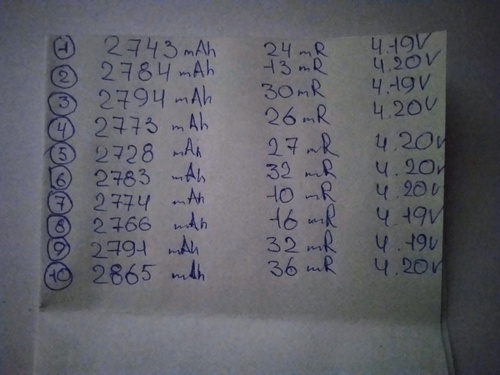 1 2743 mAh 24 mR 4.19V
2 2784 mAh 13 mR 4.20V
3 2794 mAh 30 mR 4.19V
4 2773 mAh 26 mR 4.20V
5 2728 mAh 27 mR 4.20V
6 2783 mAh 32 mR 4.20V
7 2774 mAh 10 mR 4.20V
8 2766 mAh 16 mR 4.19V
9 2791 mAh 32 mR 4.19V
10 2865 mAh 36 mR 4.20V